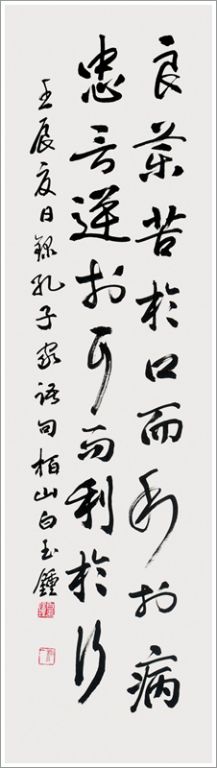 良药苦於口而利於病
忠言逆於耳而利於行
壬辰夏日录孔子家语句柏山白玉锺